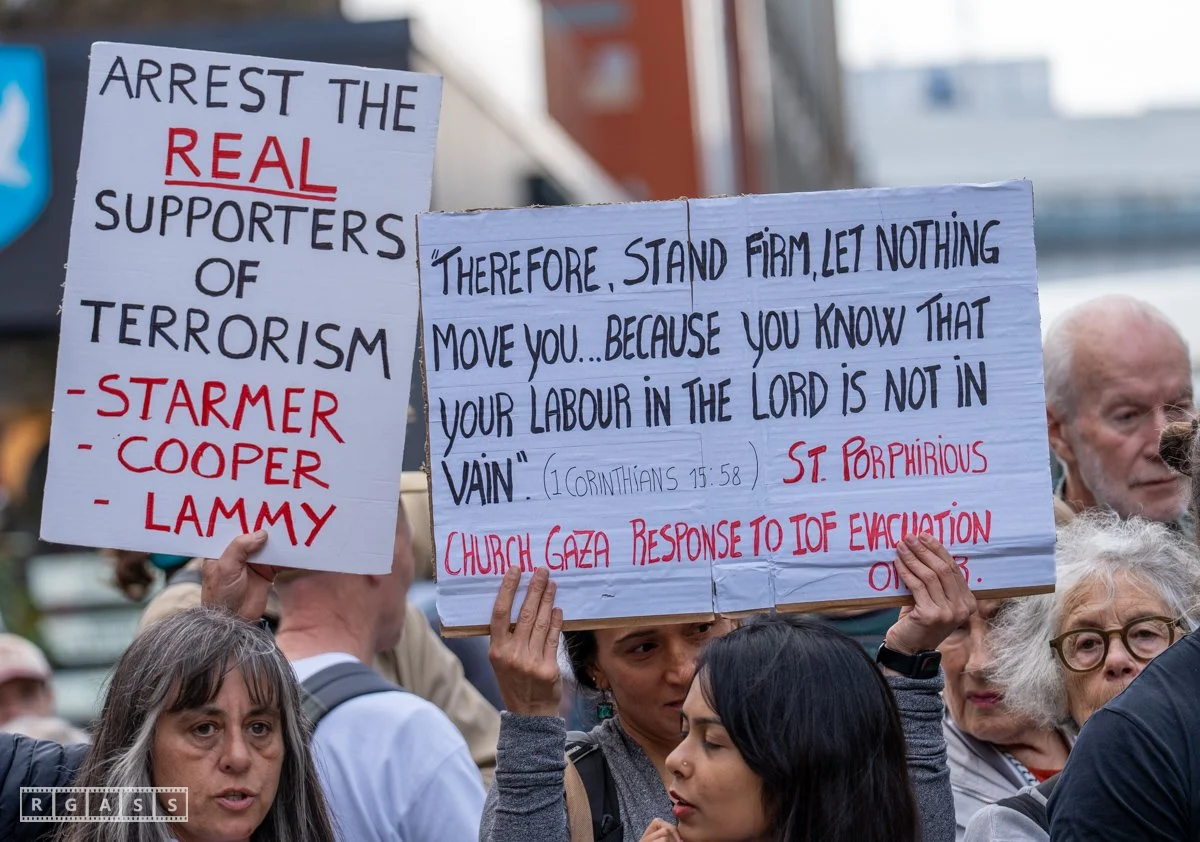 ARREST THE
REAL
SUPPORTERS
OF
TERRORISM
- STARMER
- COOPER
- LAMMY
"THEREFORE, STAND FIRM, LET NOTHING
MOVE YOU... BECAUSE YOU KNOW THAT
YOUR LABOUR IN THE LORD IS NOT IN
VAIN". (1 CORINTHIANS 15:58) ST. PORPHIRIOUS
CHURCH GAZA RESPONSE TO IOF EVACUATION
RGASS